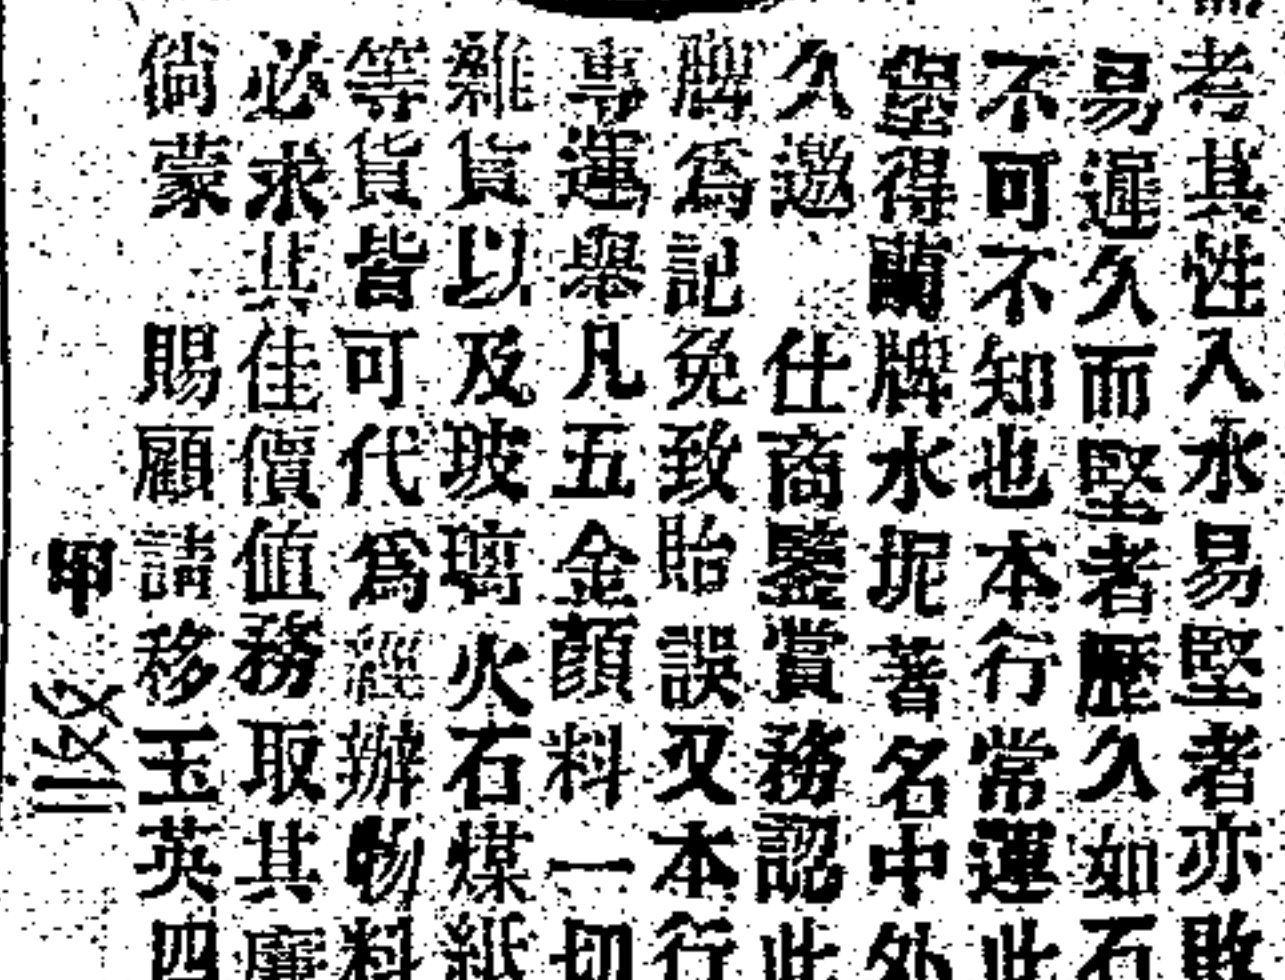 考其性入水易堅者亦敗
易遲久而堅者歷久如石
不可不知也本行常運此
堡得蘭牌水坭著名中外
久邀 仕商鑒賞務認此
牌為記免致貽誤又本行
專運舉凡五金顏料一切
雜貨以及玻璃火石煤紙
等貨皆可代為經辦物料
必求其佳價值務取其廉
倘蒙 賜顧請移玉英四
甲